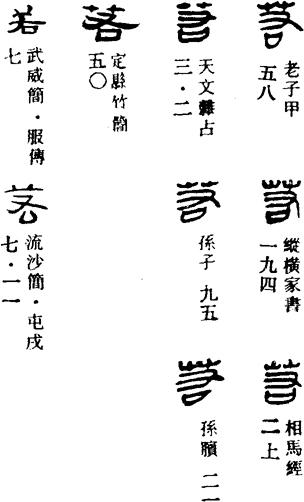 若
老子甲
五八
若
縱橫家書
一九四
若
相馬經
二上
若
天文雜占
三·二
若
孫子 九五
若
孫臏 二一一
若
定縣竹簡
五〇
若
武威簡·服傳
七
若
流沙簡·屯戍
七·一一